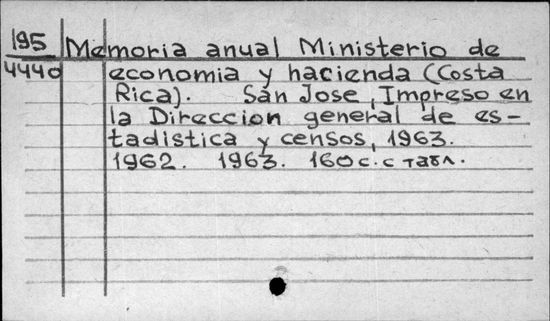 195 Memoria anual Ministerio de
4440 economia y hacienda (Costa
Rica). San Jose, Impreso en
la Direccion general de es-
tadistica y censos, 1963.
1962. 1963. 160 с. с табл.